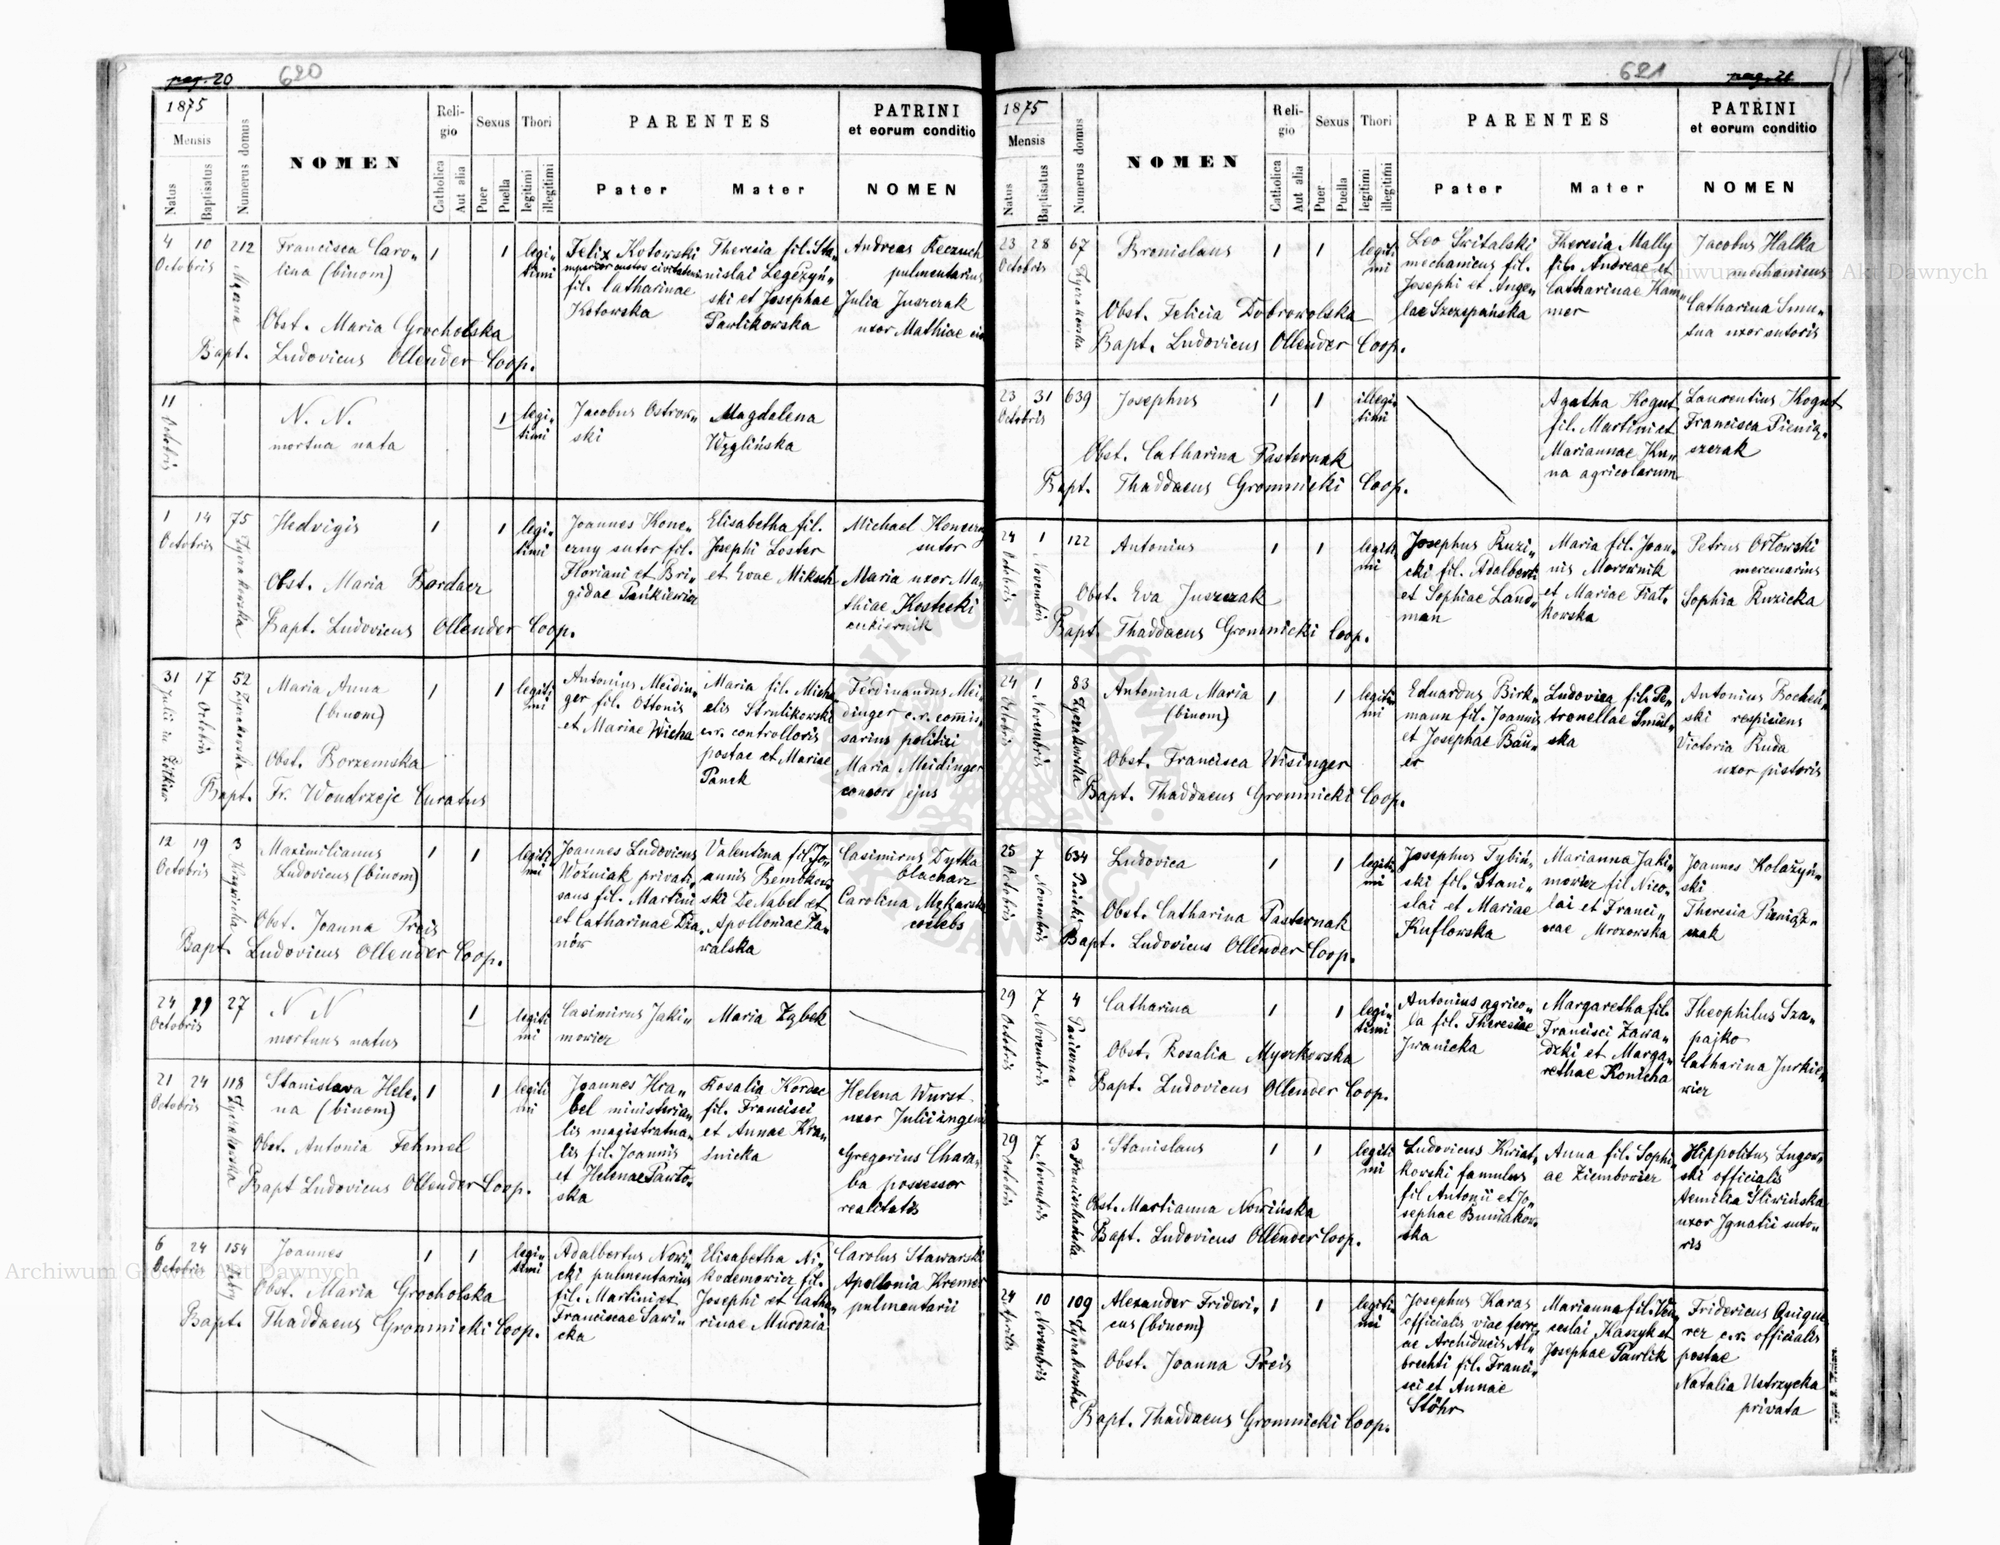 pag. 20
620
1875
Mensis
Natus
Baptisatus
Numerus domus
NOMEN
Religio
Catholica
Aut alia
Sexus
Puer
Puella
Thori
legitimi
illegitimi
PARENTES
Pater
Mater
PATRINI
et eorum conditio
NOMEN
4 10 212
Octobris
Francisca Caro-
lina (binom)
1 1 legi-
timi
Obst. Maria Grocholska
Bapt. Ludovicus Ollender Coop.
Felix Kotowski
fil. Catharinae
Kotowska
Theresia fil. Sta-
nislai Legezyń-
ski et Josephae
Pawlikowska
Andreas Keczuch
pulmentarius
Julia Juszczak
uxor Mathiae
11
Octobris
N. N.
mortua nata
1 legi-
timi
Jacobus Ostrow-
ski
Magdalena
Węglińska
1 14 75
Octobris
Żyrakowska
Hedvigis
1 1 legi-
timi
Obst. Maria Bordacz
Bapt. Ludovicus Ollender Coop.
Joannes Kone-
czny sutor fil.
Floriani et Bri-
gidae Pańkiewicz
Elisabetha fil.
Josephi Loster
et Evae Miksch
Michael
sutor
Maria uxor Ma-
thiae Kostecki
cukiernik
31 17 52
Julii in Żółkiew
Octobris
Żyrakowska
Maria Anna
(binom)
1 1 legiti
mi
Obst. Borzemska
Bapt. Fr. Wondrzeje Curatus
Antonius Meidin-
ger fil. Ottonis
et Mariae Wicha
Maria fil. Micha-
elis Strulikowski
c.r. controlloris
postae et Mariae
Panek
Ferdinandus Mei-
dinger c.r. comis-
sarius politici
Maria Meidinger
consors ejus
12 19 3
Octobris
Maximilianus
Ludovicus (binom)
1 1 legiti
mi
Obst. Joanna Preis
Bapt. Ludovicus Ollender Coop.
Joannes Ludovicus
Woźniak privati-
sans fil. Martini
et Catharinae Dzia-
nów
Valentina fil. Jo-
annis Bembnow-
ski De Nabel et
Apolloniae Za-
walska
Casimirus Dytka
blacharz
Carolina Mękarska
coelebs
24 27
Octobris
N N
mortuus natus
1 legiti
mi
Casimirus Jaki-
mowicz
Maria Zybek
21 24 118
Octobris
Żyrakowska
Stanislava Hele-
na (binom)
1 1 legiti
mi
Obst. Antonia Fehmel
Bapt Ludovicus Ollender Coop.
Joannes Hra-
bel ministeria-
lis magistratua-
lis fil. Joannis
et Helenae Pawło-
ska
Rosalia Kordec
fil. Francisci
et Annae Kra-
śnicka
Helena Wurst
uxor Julii
Gregorius Chara-
ba possessor
realitatis
6 24 154
Octobris
Joannes
1 1 legi-
timi
Obst. Maria Grocholska
Bapt. Thaddaeus Gromnicki Coop.
Adalbertus Nowi-
cki pulmentarius
fil. Martini et
Franciscae Sawi-
cka
Elisabetha Ni-
kodemowicz fil.
Josephi et Catha-
rinae Murdzia
Carolus Stawarski
Apollonia Kremer
pulmentarii
621
pag. 21
1875
Mensis
Natus
Baptisatus
Numerus domus
NOMEN
Religio
Catholica
Aut alia
Sexus
Puer
Puella
Thori
legitimi
illegitimi
PARENTES
Pater
Mater
PATRINI
et eorum conditio
NOMEN
23 28 67
Octobris
Żyrakowska
Bronislaus
1 1 legiti
mi
Obst. Felicia Dobrowolska
Bapt. Ludovicus Ollender Coop.
Leo Switalski
mechanicus fil.
Josephi et Ange-
lae Szczepańska
Theresia Mally
fil. Andreae et
Catharinae Ham-
mer
Jacobus Halka
mechanicus
Catharina Smu-
tna uxor sutoris
23 31 639
Octobris
Josephus
1 1 illegi-
timi
Obst. Catharina Pasternak
Bapt. Thaddaeus Gromnicki Coop.
Agatha Kogut
fil. Martini et
Mariannae Ku-
na agricolarum
Laurentius Kogut
Francisca Pieniąz-
szczak
24 1 122
Octobris
Novembris
Antonius
1 1 legiti
mi
Obst. Eva Juszczak
Bapt. Thaddaeus Gromnicki Coop.
Josephus Ruzi-
cki fil. Adalberti
et Sophiae Land-
man
Maria fil. Joan-
nis Morownik
et Mariae Fiat-
kowska
Petrus Orłowski
mercenarius
Sophia Ruzicka
24 1 83
Octobris
Novembris
Żyrakowska
Antonina Maria
(binom)
1 1 legiti
mi
Obst. Francisca Wisinger
Bapt. Thaddaeus Gromnicki Coop.
Eduardus Birk-
mann fil. Joannis
et Josephae Bau-
er
Ludovica fil. Pe-
tronellae Smul-
ska
Antonius Bocheń-
ski respiciens
Victoria Ruda
uxor pistoris
25 7 634
Octobris
Novembris
Ludovica
1 1 legiti-
mi
Obst. Catharina Pasternak
Bapt. Ludovicus Ollender Coop.
Josephus Tybiń-
ski fil. Stani-
slai et Mariae
Kuflowska
Marianna Jaki-
mowicz fil Nico-
lai et Franci-
scae Mrozowska
Joannes Kolażyń-
ski
Theresia Pieniąz-
czak
29 7 4
Octobris
Novembris
Catharina
1 1 legi-
timi
Obst. Rosalia Myszkowska
Bapt. Ludovicus Ollender Coop.
Antonius agrico-
la fil. Theresiae
Iwanicka
Margaretha fil.
Francisci Zawa-
dzki et Marga-
rethae Konicha
Theophilus Sza-
pajko
Catharina Jurkie-
wicz
29 7 3
Octobris
Novembris
Stanislaus
1 1 legiti
mi
Obst. Marianna Nowińska
Bapt. Ludovicus Ollender Coop.
Ludovicus Kwiat-
kowski famulus
fil Antonii et Jo-
sephae Buniakow-
ska
Anna fil. Sophi-
ae Ziembowicz
Hippolitus Lugow-
ski officialis
Aemilia Śliwińska
uxor Ignatii suto-
ris
24 10 109
Aprilis
Novembris
Żyrakowska
Alexander Frideri-
cus (binom)
1 1 legiti-
mi
Obst. Joanna Preis
Bapt. Thaddaeus Gromnicki Coop.
Josephus Karas
officialis viae ferre-
ae Archiducis Al-
brechti fil. Franci-
sci et Annae
Stöhr
Marianna fil. Ven-
ceslai Kaszyk et
Josephae Pawlik
Fridericus
c.r. officialis
postae
Natalia Ustrzycka
privata
Archiwum Główne Akt Dawnych
Archiwum Główne Akt Dawnych